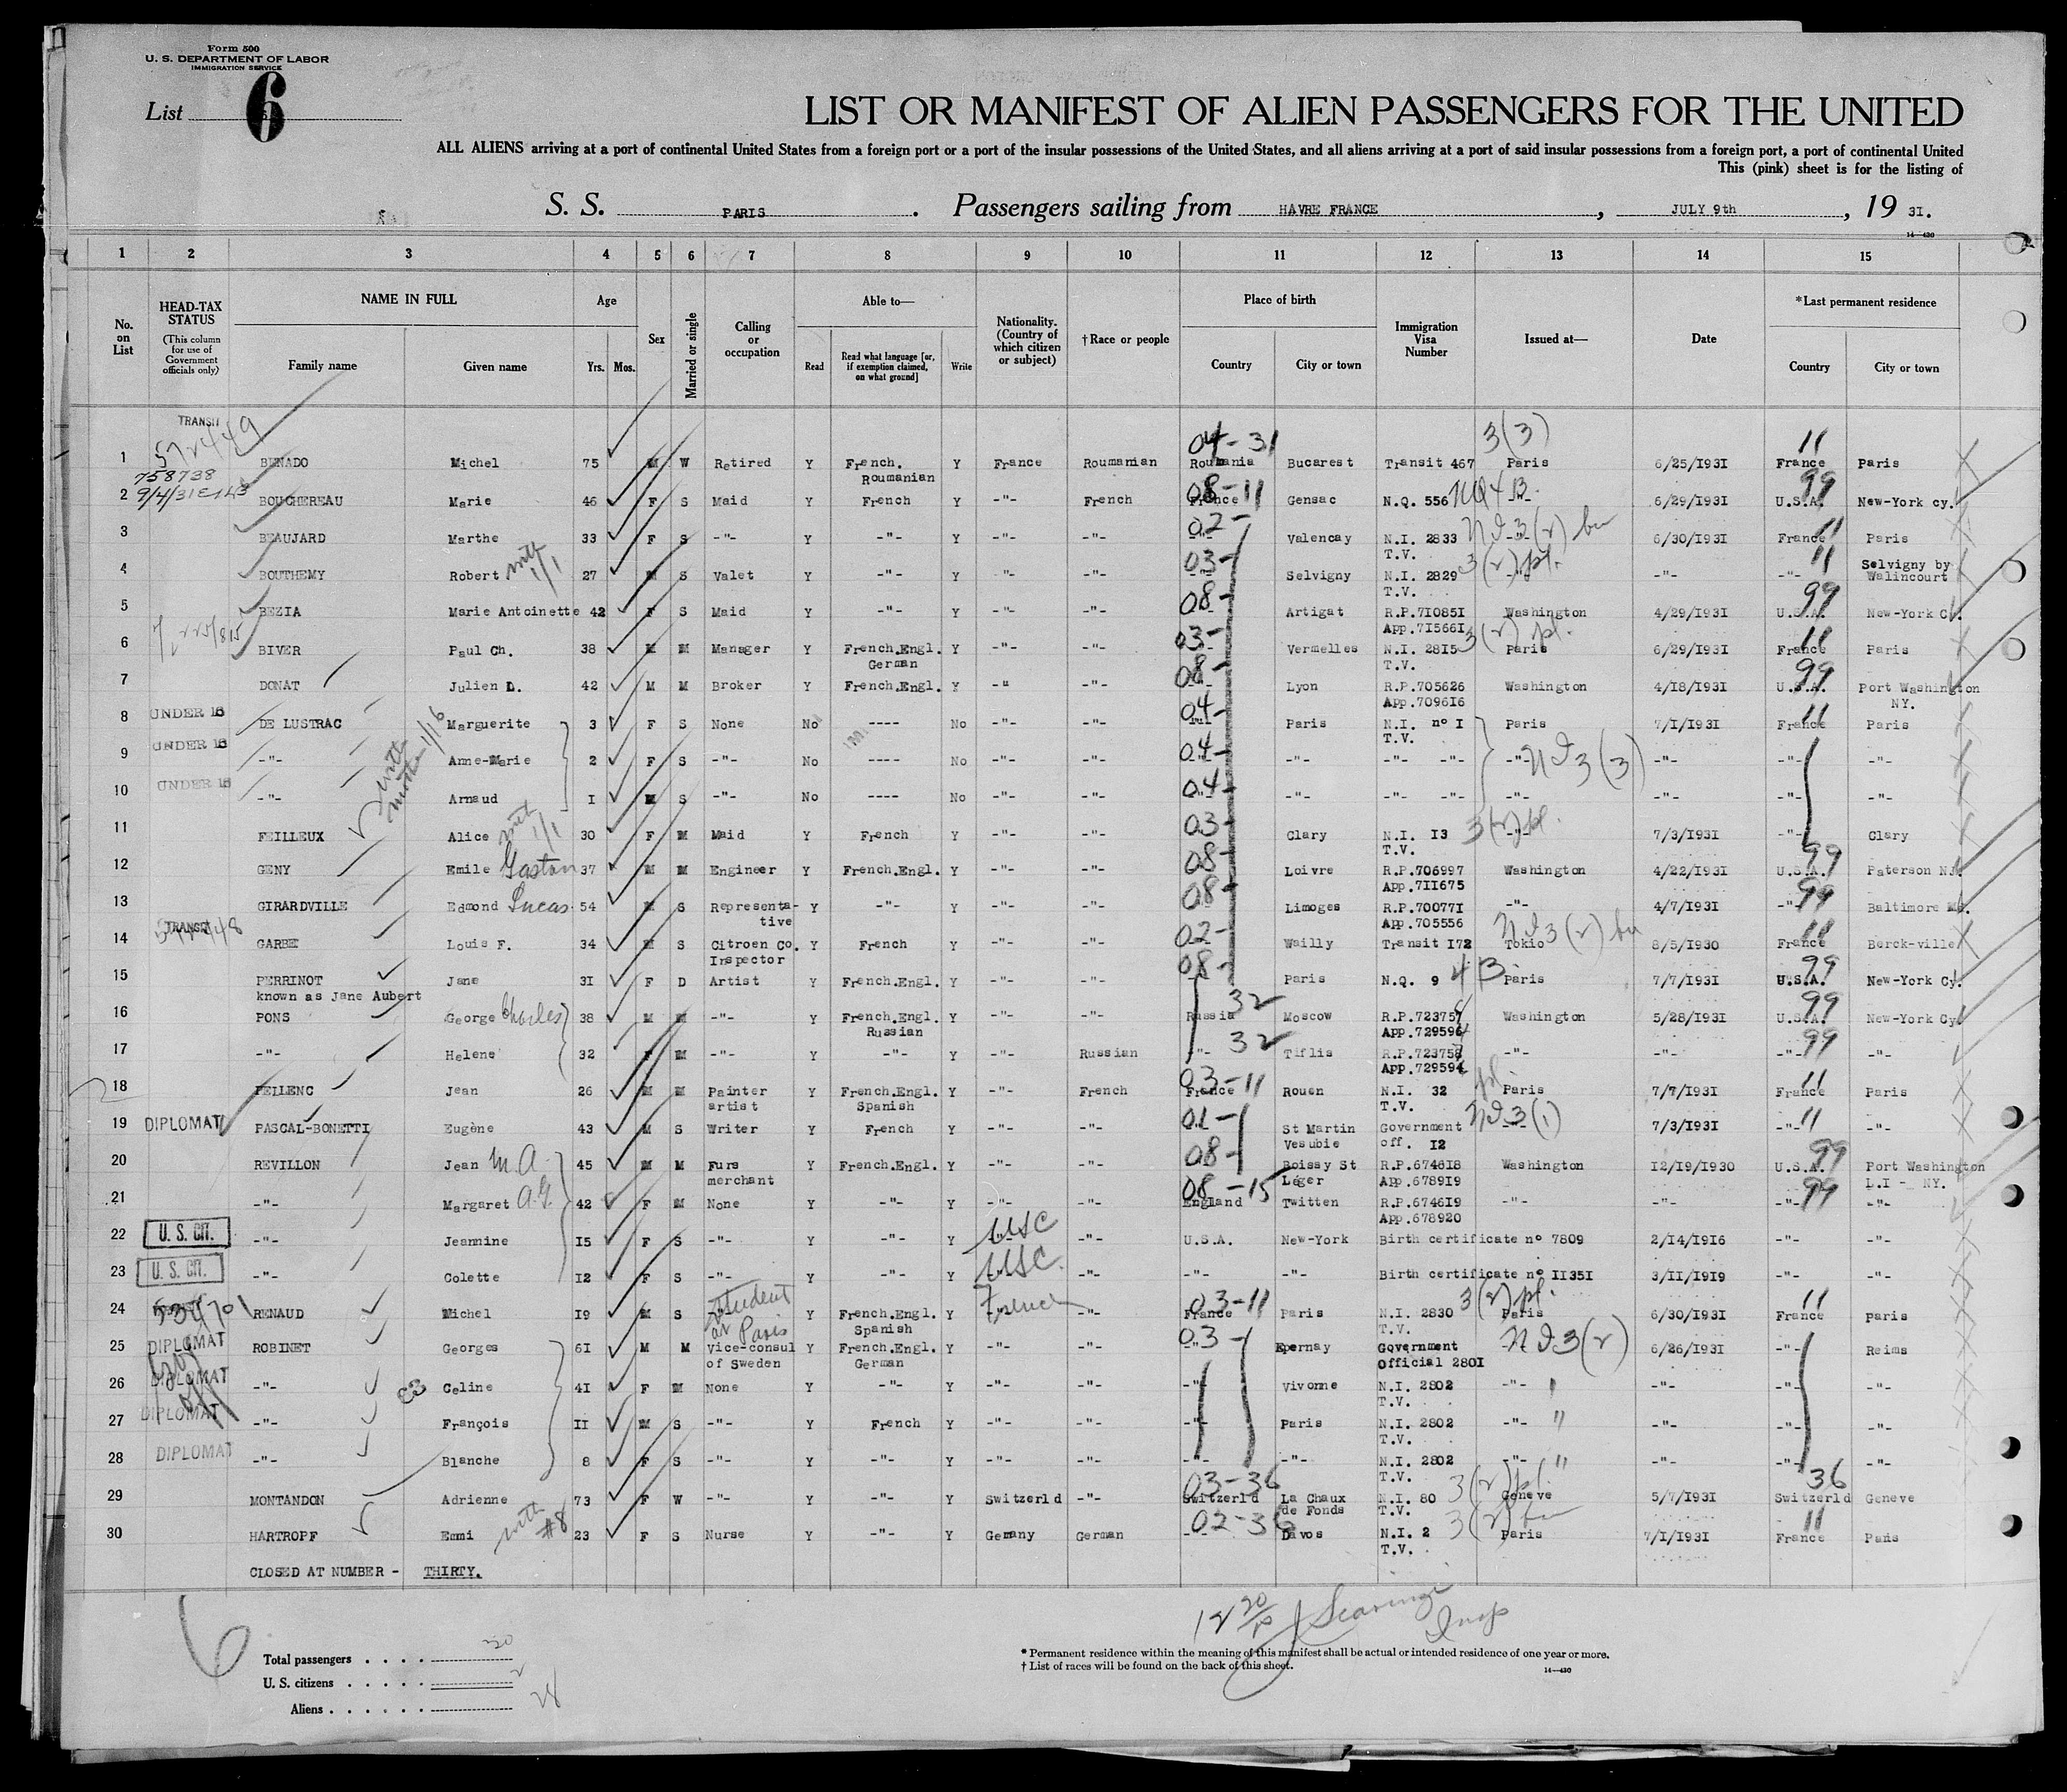 Form 500
U. S. DEPARTMENT OF LABOR
IMMIGRATION SERVICE
List 6
LIST OR MANIFEST OF ALIEN PASSENGERS FOR THE UNITED
ALL ALIENS arriving at a port of continental United States from a foreign port or a port of the insular possessions of the United States, and all aliens arriving at a port of said insular possessions from a foreign port, a port of continental United
This (pink) sheet is for the listing of
S. S. PARIS. Passengers sailing from HAVRE FRANCE, JULY 9th, 19 3I.
14—430
1 2 3 4 5 6 7 8 9 10 11 12 13 14 15
No. on List
HEAD-TAX STATUS
(This column for use of Government officials only)
NAME IN FULL
Family name Given name
Age
Yrs. Mos.
Sex
Married or single
Calling or occupation
Able to—
Read
Read what language [or, if exemption claimed, on what ground]
Write
Nationality. (Country of which citizen or subject)
†Race or people
Place of birth
Country City or town
Immigration Visa Number
Issued at—
Date
*Last permanent residence
Country City or town
TRANSIT
572449 04-31 3(3) 11
1 BENADO Michel 75 M W Retired Y French. Y France Roumanian Roumania Bucarest Transit 467 Paris 6/25/I93I France Paris
758738 Roumanian 08-11 99
2 9/4/31 BOUCHEREAU Marie 46 F S Maid Y French Y -"- French France Gensac N.Q. 556 NQ4B. -"- 6/29/I93I U.S.A. New-York cy.
02- 11
3 BEAUJARD Marthe 33 F S -"- Y -"- Y -"- -"- -"- Valencay N.I. 2833 3(2) -"- 6/30/I93I France Paris
T.V.
4 BOUTHEMY Robert with 1/1 27 M S Valet Y -"- Y -"- -"- 03- Selvigny N.I. 2829 3(2)pl. -"- -"- 11 Selvigny by Walincourt
T.V.
5 BEZIA Marie Antoinette 42 F S Maid Y -"- Y -"- -"- 08- Artigat R.P.7I085I Washington 4/29/I93I U.S.A. 99 New-York C.
App.7I566I
6 BIVER Paul Ch. 38 M M Manager Y French.Engl. Y -"- -"- 03- Vermelles N.I. 28I5 3(2) pl. Paris 6/29/I93I France 11 Paris
German T.V.
7 DONAT Julien D. 42 M M Broker Y French.Engl. Y -" -"- 08- Lyon R.P.705626 Washington 4/I8/I93I U.S.A. 99 Port Washington
App.7096I6 NY.
8 UNDER 16 DE LUSTRAC Marguerite 3 F S None No ---- No -"- -"- 04- Paris N.I. nº I Paris 7/I/I93I France 11 Paris
T.V.
9 UNDER 16 -"- with mother 1/16 Anne-Marie 2 F S -"- No ---- No -"- -"- 04- -"- -"- -"- -"- 3(3) -"- -"- -"-
10 UNDER 16 -"- Arnaud I M S -"- No ---- No -"- -"- 04- -"- -"- -"- -"- -"- -"- -"-
11 FEILLEUX Alice with 1/1 30 F M Maid Y French Y -"- -"- 03- Clary N.I. I3 3(2)pl. -"- 7/3/I93I -"- Clary
T.V.
12 GENY Emile Gaston 37 M M Engineer Y French.Engl. Y -"- -"- 08- Loivre R.P.706997 Washington 4/22/I93I U.S.A. 99 Paterson NJ.
App.7II675
13 GIRARDVILLE Edmond Lucas 54 M S Representa- Y -"- Y -"- -"- 08- Limoges R.P.70077I -"- 4/7/I93I -"- 99 Baltimore Md.
tive App.705556
14 TRANSIT GARBE Louis F. 34 M S Citroen Co. Y French Y -"- -"- 02- Wailly Transit I72 Tokio 3(2) 8/5/I930 France 11 Berck-ville
Inspector
15 PERRINOT Jane 3I F D Artist Y French.Engl. Y -"- -"- 08- Paris N.Q. 9 4B Paris 7/7/I93I U.S.A. 99 New-York Cy.
known as Jane Aubert
16 PONS George Charles 38 M M -"- Y French.Engl. Y -"- -"- Russia 32 Moscow R.P.72375 Washington 5/28/I93I U.S.A. 99 New-York Cy.
Russian App.729596
17 -"- Helene 32 F M -"- Y -"- Y -"- Russian -"- 32 Tiflis R.P.72375 -"- -"- -"- 99 -"-
App.729594
18 PELLENC Jean 26 M M Painter Y French.Engl. Y -"- French 03-11 France Rouen N.I. 32 pl. Paris 7/7/I93I France 11 Paris
artist Spanish T.V.
19 DIPLOMAT PASCAL-BONETTI Eugène 43 M S Writer Y French Y -"- -"- 01- St Martin Government 3(1) -"- 7/3/I93I -"- 11 -"-
Vesubie off. I2
20 REVILLON Jean M.A. 45 M M Furs Y French.Engl. Y -"- -"- 08- Boissy St R.P.6746I8 Washington I2/I9/I930 U.S.A. 99 Port Washington
merchant Léger App.6789I9 L.I - NY.
21 -"- Margaret A.G. 42 F M None Y -"- Y -"- -"- 08-15 England Twitten R.P.6746I9 -"- -"- -"- 99 -"-
App.678920
22 U. S. CIT. -"- Jeannine I5 F S -"- Y -"- Y USC -"- U.S.A. New-York Birth certificate nº 7809 2/I4/I9I6 -"- -"-
23 U. S. CIT. -"- Colette I2 F S -"- Y -"- Y USC. -"- -"- -"- Birth certificate nº II35I 3/II/I9I9 -"- -"-
24 RENAUD Michel I9 M S student at Paris Y French.Engl. Y French -"- 03-11 France Paris N.I. 2830 3(2)pl. Paris 6/30/I93I France 11 Paris
Spanish T.V.
25 DIPLOMAT ROBINET Georges 6I M M Vice-consul Y French.Engl. Y -"- -"- 03- -"- Epernay Government 3(2) 6/26/I93I -"- Reims
of Sweden German Official 280I
26 DIPLOMAT -"- Celine 4I F M None Y -"- Y -"- -"- -"- Vivonne N.I. 2802 -"- -"- -"- -"-
T.V.
27 DIPLOMAT -"- François II M S -"- Y French Y -"- -"- -"- Paris N.I. 2802 -"- " -"- -"- -"-
T.V.
28 DIPLOMAT -"- Blanche 8 F S -"- Y -"- Y -"- -"- -"- -"- N.I. 2802 -"- " -"- -"- -"-
T.V.
29 MONTANDON Adrienne 73 F W -"- Y -"- Y Switzerld -"- 03-36 Switzerld La Chaux de Fonds N.I. 80 3(2)pl. Geneve 5/7/I93I Switzerld 36 Geneve
T.V.
30 HARTROPF Emmi with #8 23 F S Nurse Y -"- Y Gemany German 02-36 -"- Davos N.I. 2 3(2) Paris 7/I/I93I France 11 Paris
T.V.
CLOSED AT NUMBER - THIRTY.
6
Total passengers . . . . 30
U. S. citizens . . . . . 2
Aliens . . . . . . 28
* Permanent residence within the meaning of this manifest shall be actual or intended residence of one year or more.
† List of races will be found on the back of this sheet.
14—430